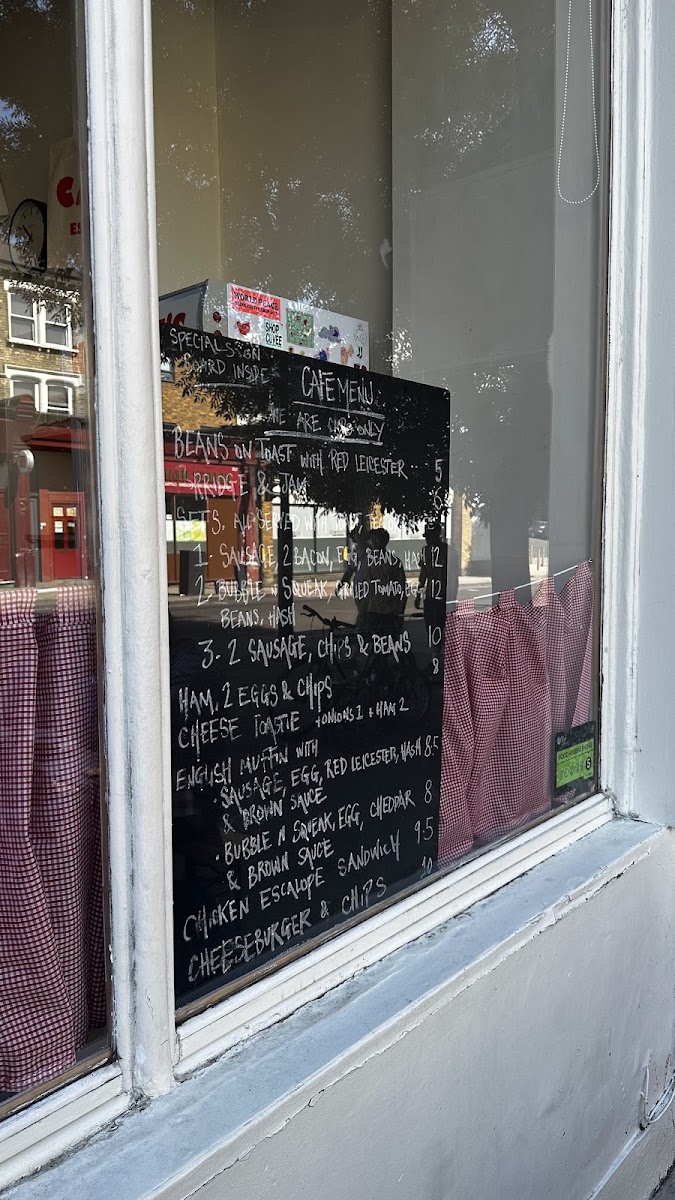 WORLD PEACE
SHOP
CUVEE
SPECIALS ON
BOARD INSIDE
CAFE MENU
WE ARE CARD ONLY
BEANS ON TOAST WITH RED LEICESTER 5
PORRIDGE & JAM 6
SETS. ALL SERVED WITH TOAST,
1. SAUSAGE, 2 BACON, EGG, BEANS, HASH 12
2. BUBBLE N SQUEAK, GRILLED TOMATO, EGG, 12
BEANS, HASH
3. 2 SAUSAGE, CHIPS & BEANS 10
HAM, 2 EGGS & CHIPS 8
CHEESE TOASTIE + ONIONS 1 + HAM 2
ENGLISH MUFFIN WITH
· SAUSAGE, EGG, RED LEICESTER, HASH 8.5
& BROWN SAUCE
· BUBBLE N SQUEAK, EGG, CHEDDAR 8
& BROWN SAUCE
CHICKEN ESCALOPE SANDWICH 9.5
CHEESEBURGER & CHIPS 10